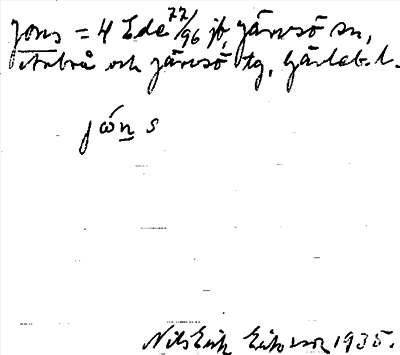 Jons = 4 Ede 77/96 jb, Järvsö sn,
Arbrå och Järvsö tg, Gävleb. l.
jón s
Nils Erik Eriksson 1935.